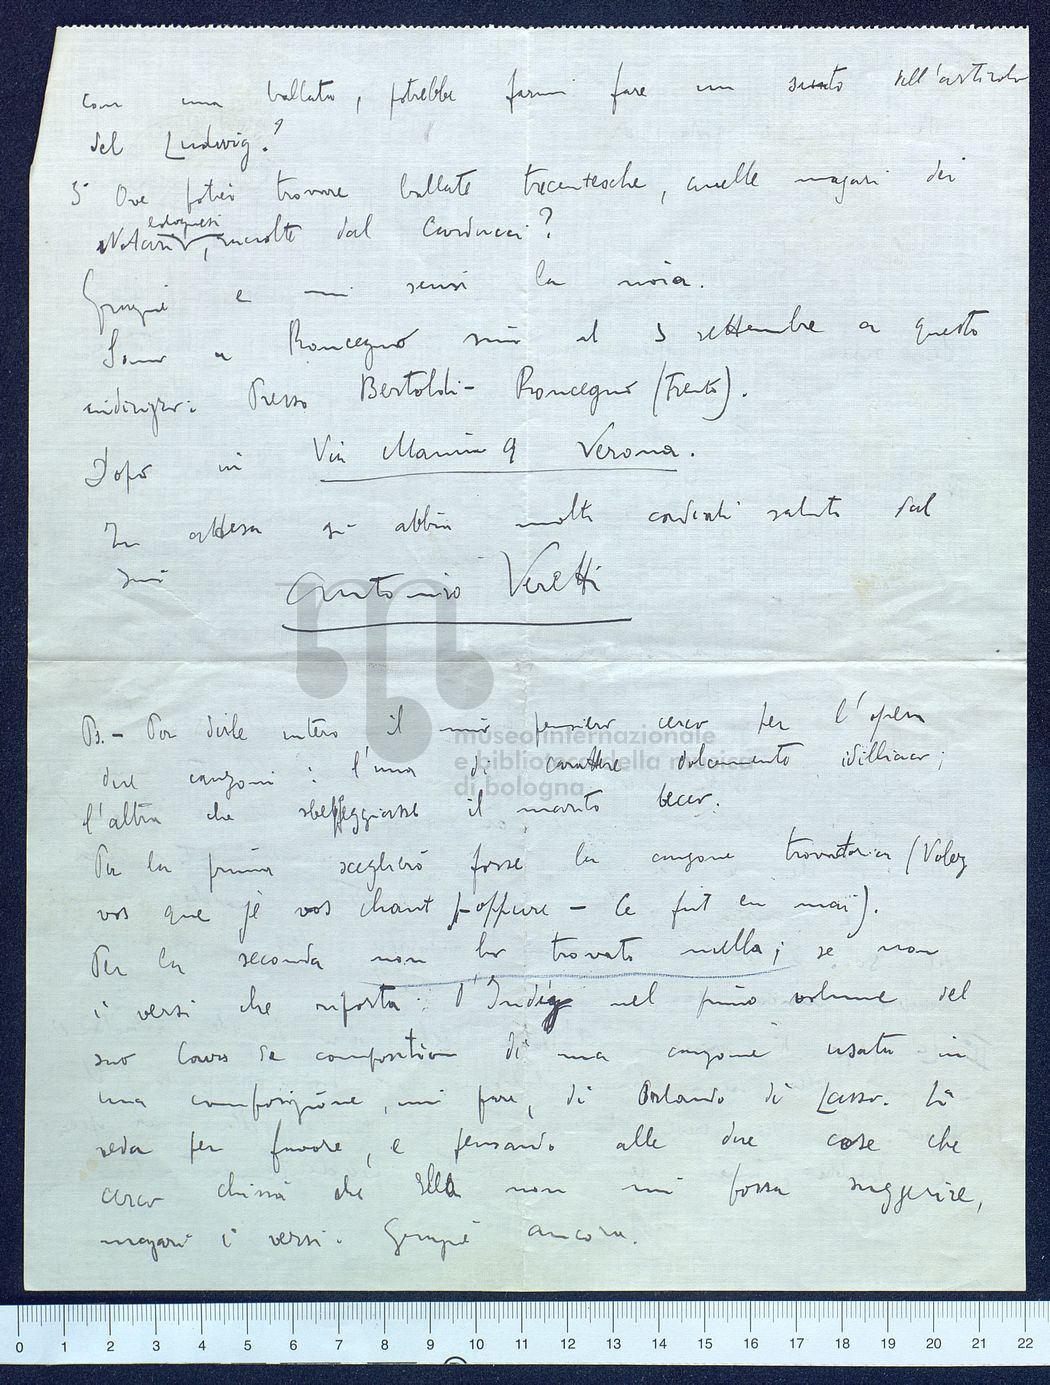 con una ballata, potrebbe farmi fare un sunto dell'articolo
del Ludwig?
5° Ove potrei trovare ballate trecentesche, quelle magari dei
Notari bolognesi, raccolte dal Carducci?
Grazie e mi scusi la noia.
Sono a Roncegno sino al 5 settembre a questo
indirizzo: Presso Bertoldi - Roncegno (Trento).
Dopo in Via Manin 9 Verona.
In attesa si abbia molti cordiali saluti dal
suo Antonio Veretti
museo internazionale
e biblioteca della musica
di bologna
Ps. - Per dirle intero il mio pensiero cerco per l'opera
due canzoni: l'una di carattere dolcemente idilliaco;
l'altra che sbeffeggiasse il marito becco.
Per la prima sceglierò forse la canzone trovatorica (Volez
vos que je vos chant - oppure - Ce fut en mai).
Per la seconda non ho trovato nulla; se non
i versi che riporta il D'Indy nel primo volume del
suo Cours de composition di una canzone usata in
una composizione, mi pare, di Orlando di Lasso. Li
veda per favore, e pensando alle due cose che
cerco chissà che Ella non mi possa suggerire,
magari i versi. Grazie ancora.
0 1 2 3 4 5 6 7 8 9 10 11 12 13 14 15 16 17 18 19 20 21 22